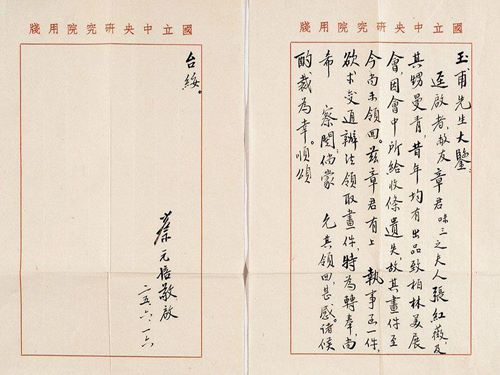 國立中央研究院用牋
玉甫先生大鑒:
逕啟者,敝友章君味三之夫人張紅薇及
其甥曼青,昔年均有出品致柏林美展
會,因會中所給收條遺失,故其畫件至
今尚未領回。茲章君有上 執事函一件,
欲求交通辦法領取畫件,特為轉奉,尚
希 察閱。倘蒙 允其領回,甚感。候
酌裁為幸。順頌
國立中央研究院用牋
台綏。
蔡元培敬啟
二五、六、一六